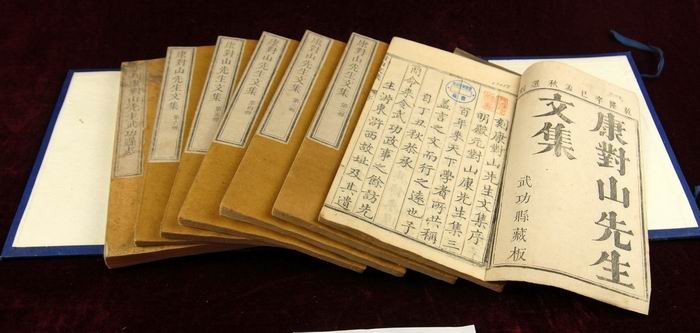 隆辛巳孟秋
康對山先生
文集
武功縣藏板
刻康對山先生文集序
元對山康先生集三
百年來天下學者所共稱
嘉言之文而行之遠也予
自丁丑秋恭承
命來令武功政事之餘訪先
生游東滸西故址及其遺
康對山先生文集
康對山先生文集
康對山先生文集
康對山先生文集
康對山先生文集
康對山先生武功縣志